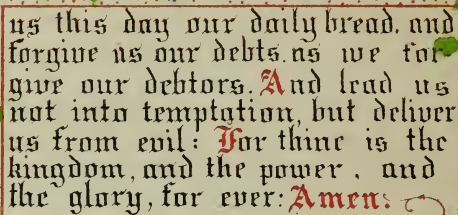 us this day our daily bread. and
forgive us our debts. as we for
give our debtors. And lead us
not into temptation, but deliver
us from evil: For thine is the
kingdom, and the power, and
the glory, for ever: Amen: